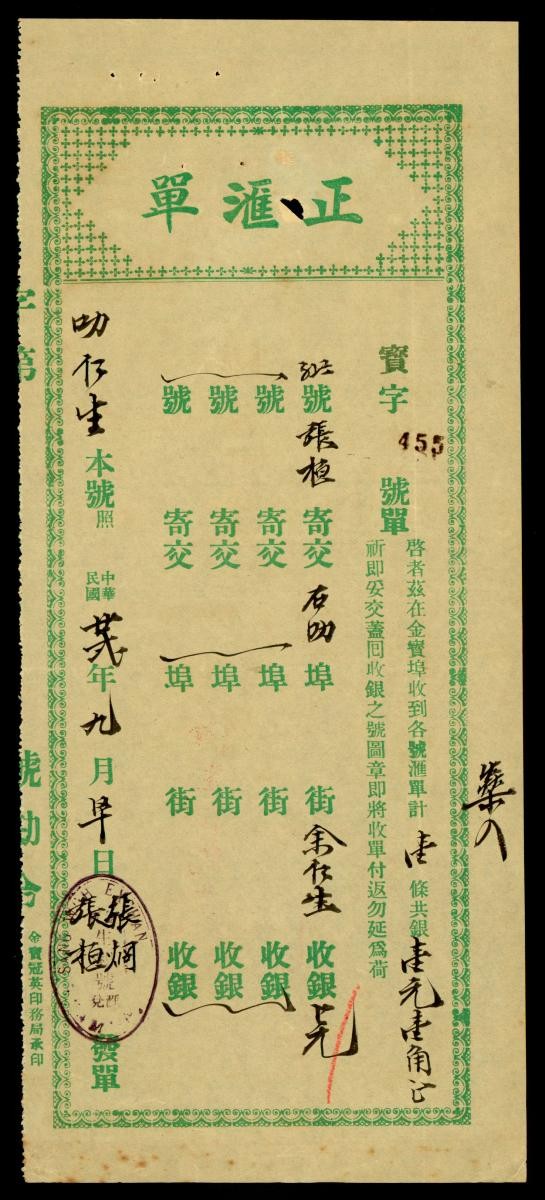 正滙單
寶字455號單
啓者茲在金寶埠收到各號滙單計壹條共銀壹元壹角正
祈即妥交蓋回收銀之號圖章即將收單付返勿延爲荷
號張桓寄交石叻埠街余仁生收銀
號寄交埠街收銀
號寄交埠街收銀
號寄交埠街收銀
叻仁生本號照中華民國年九月日發單
張炯
張桓
字第號
金寶冠英印務局承印
藥